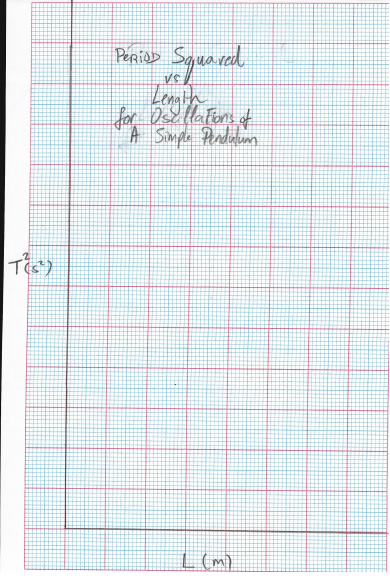 PERIOD Squared
vs
Length
for Oscillations of
A Simple Pendulum
T²(s²)
L (m)